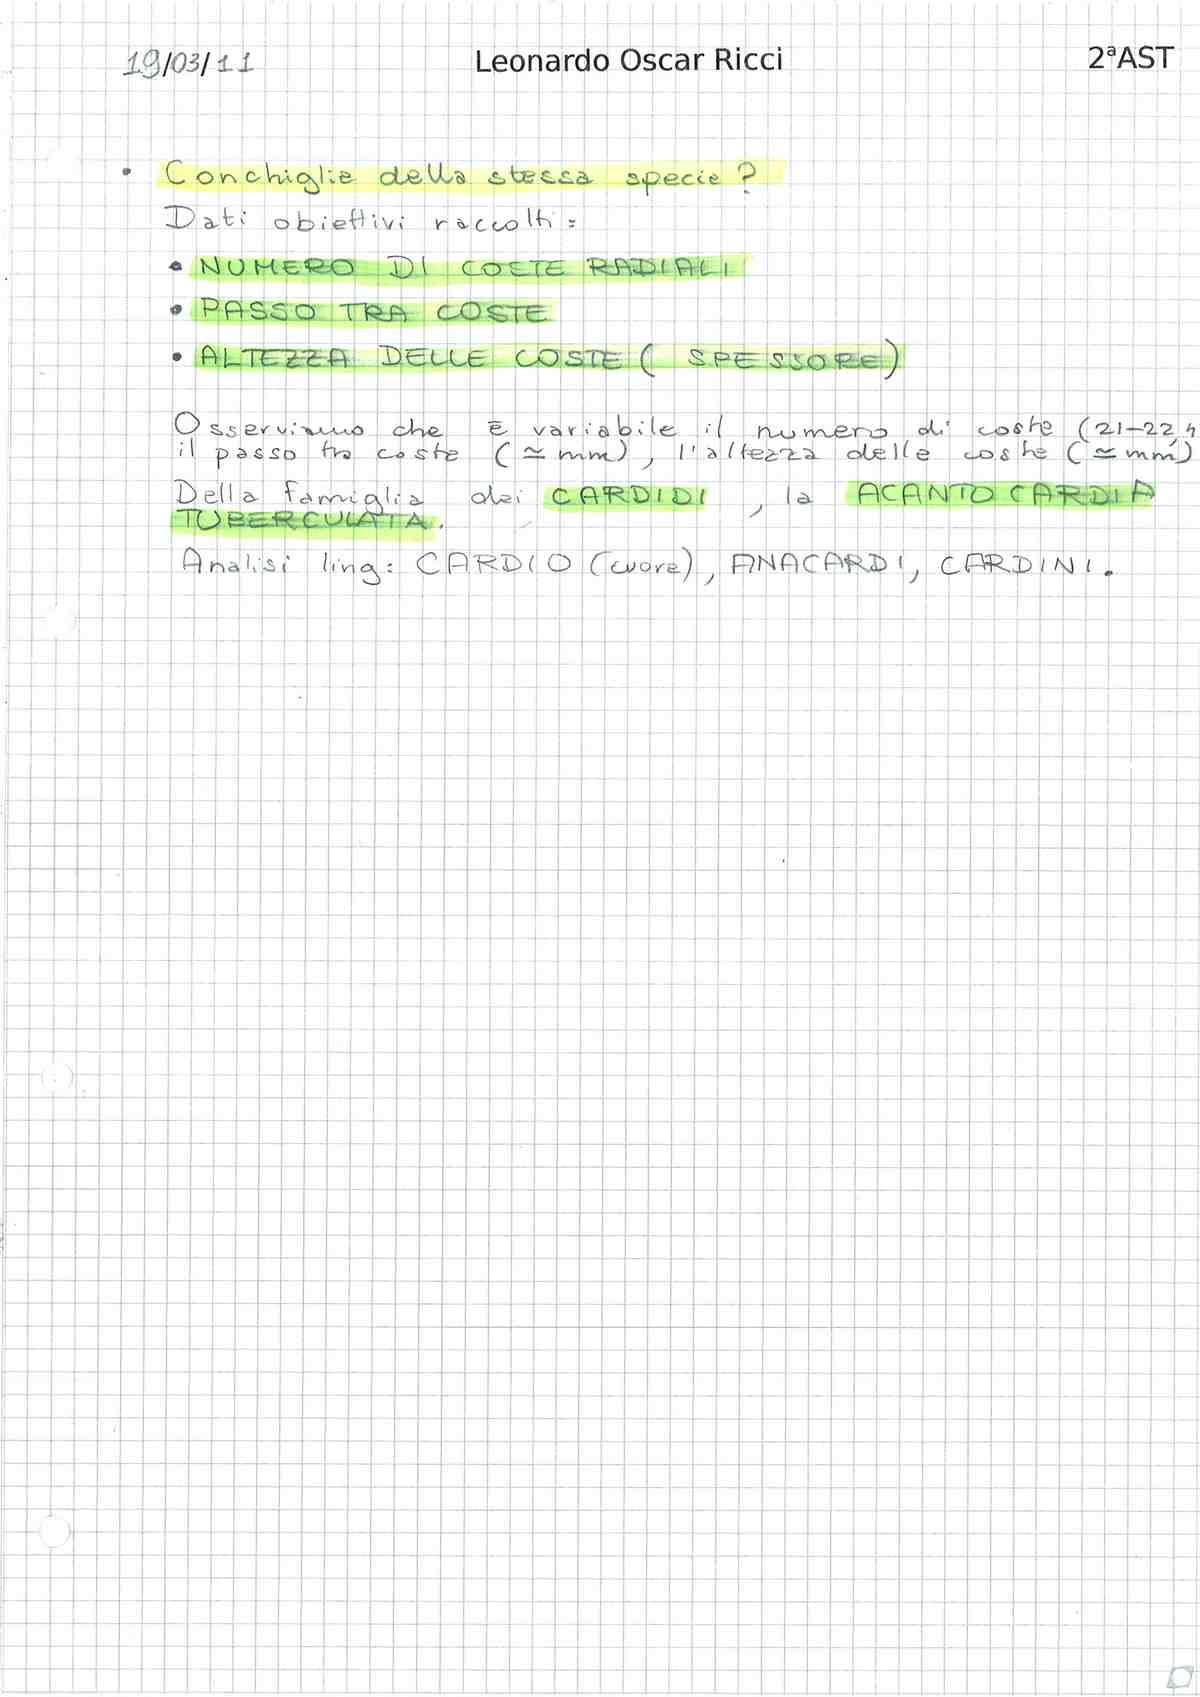 19/03/11 Leonardo Oscar Ricci 2ªAST
• Conchiglie della stessa specie?
Dati obiettivi raccolti:
• NUMERO DI COSTE RADIALI
• PASSO TRA COSTE
• ALTEZZA DELLE COSTE ( SPESSORE)
Osserviamo che è variabile il numero di coste (21-22,
il passo tra coste (≃ mm), l'altezza delle coste (≃ mm)
Della famiglia dei CARDIDI, la ACANTO CARDIA
TUBERCULATA.
Analisi ling: CARDIO (cuore), ANACARDI, CARDINI.